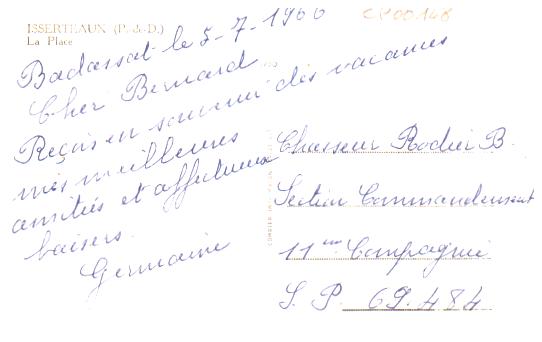 ISSERTEAUX (P.-de-D.)
La Place
CP00148
Badassat le 5-7-1960
Cher Bernard
Reçois en souvenir des vacances
mes meilleures
amitiés et affectueux
baisers.
Germaine
Chasseur Rodier B.
Section Commandement
11ème Compagnie
S. P. 69.484